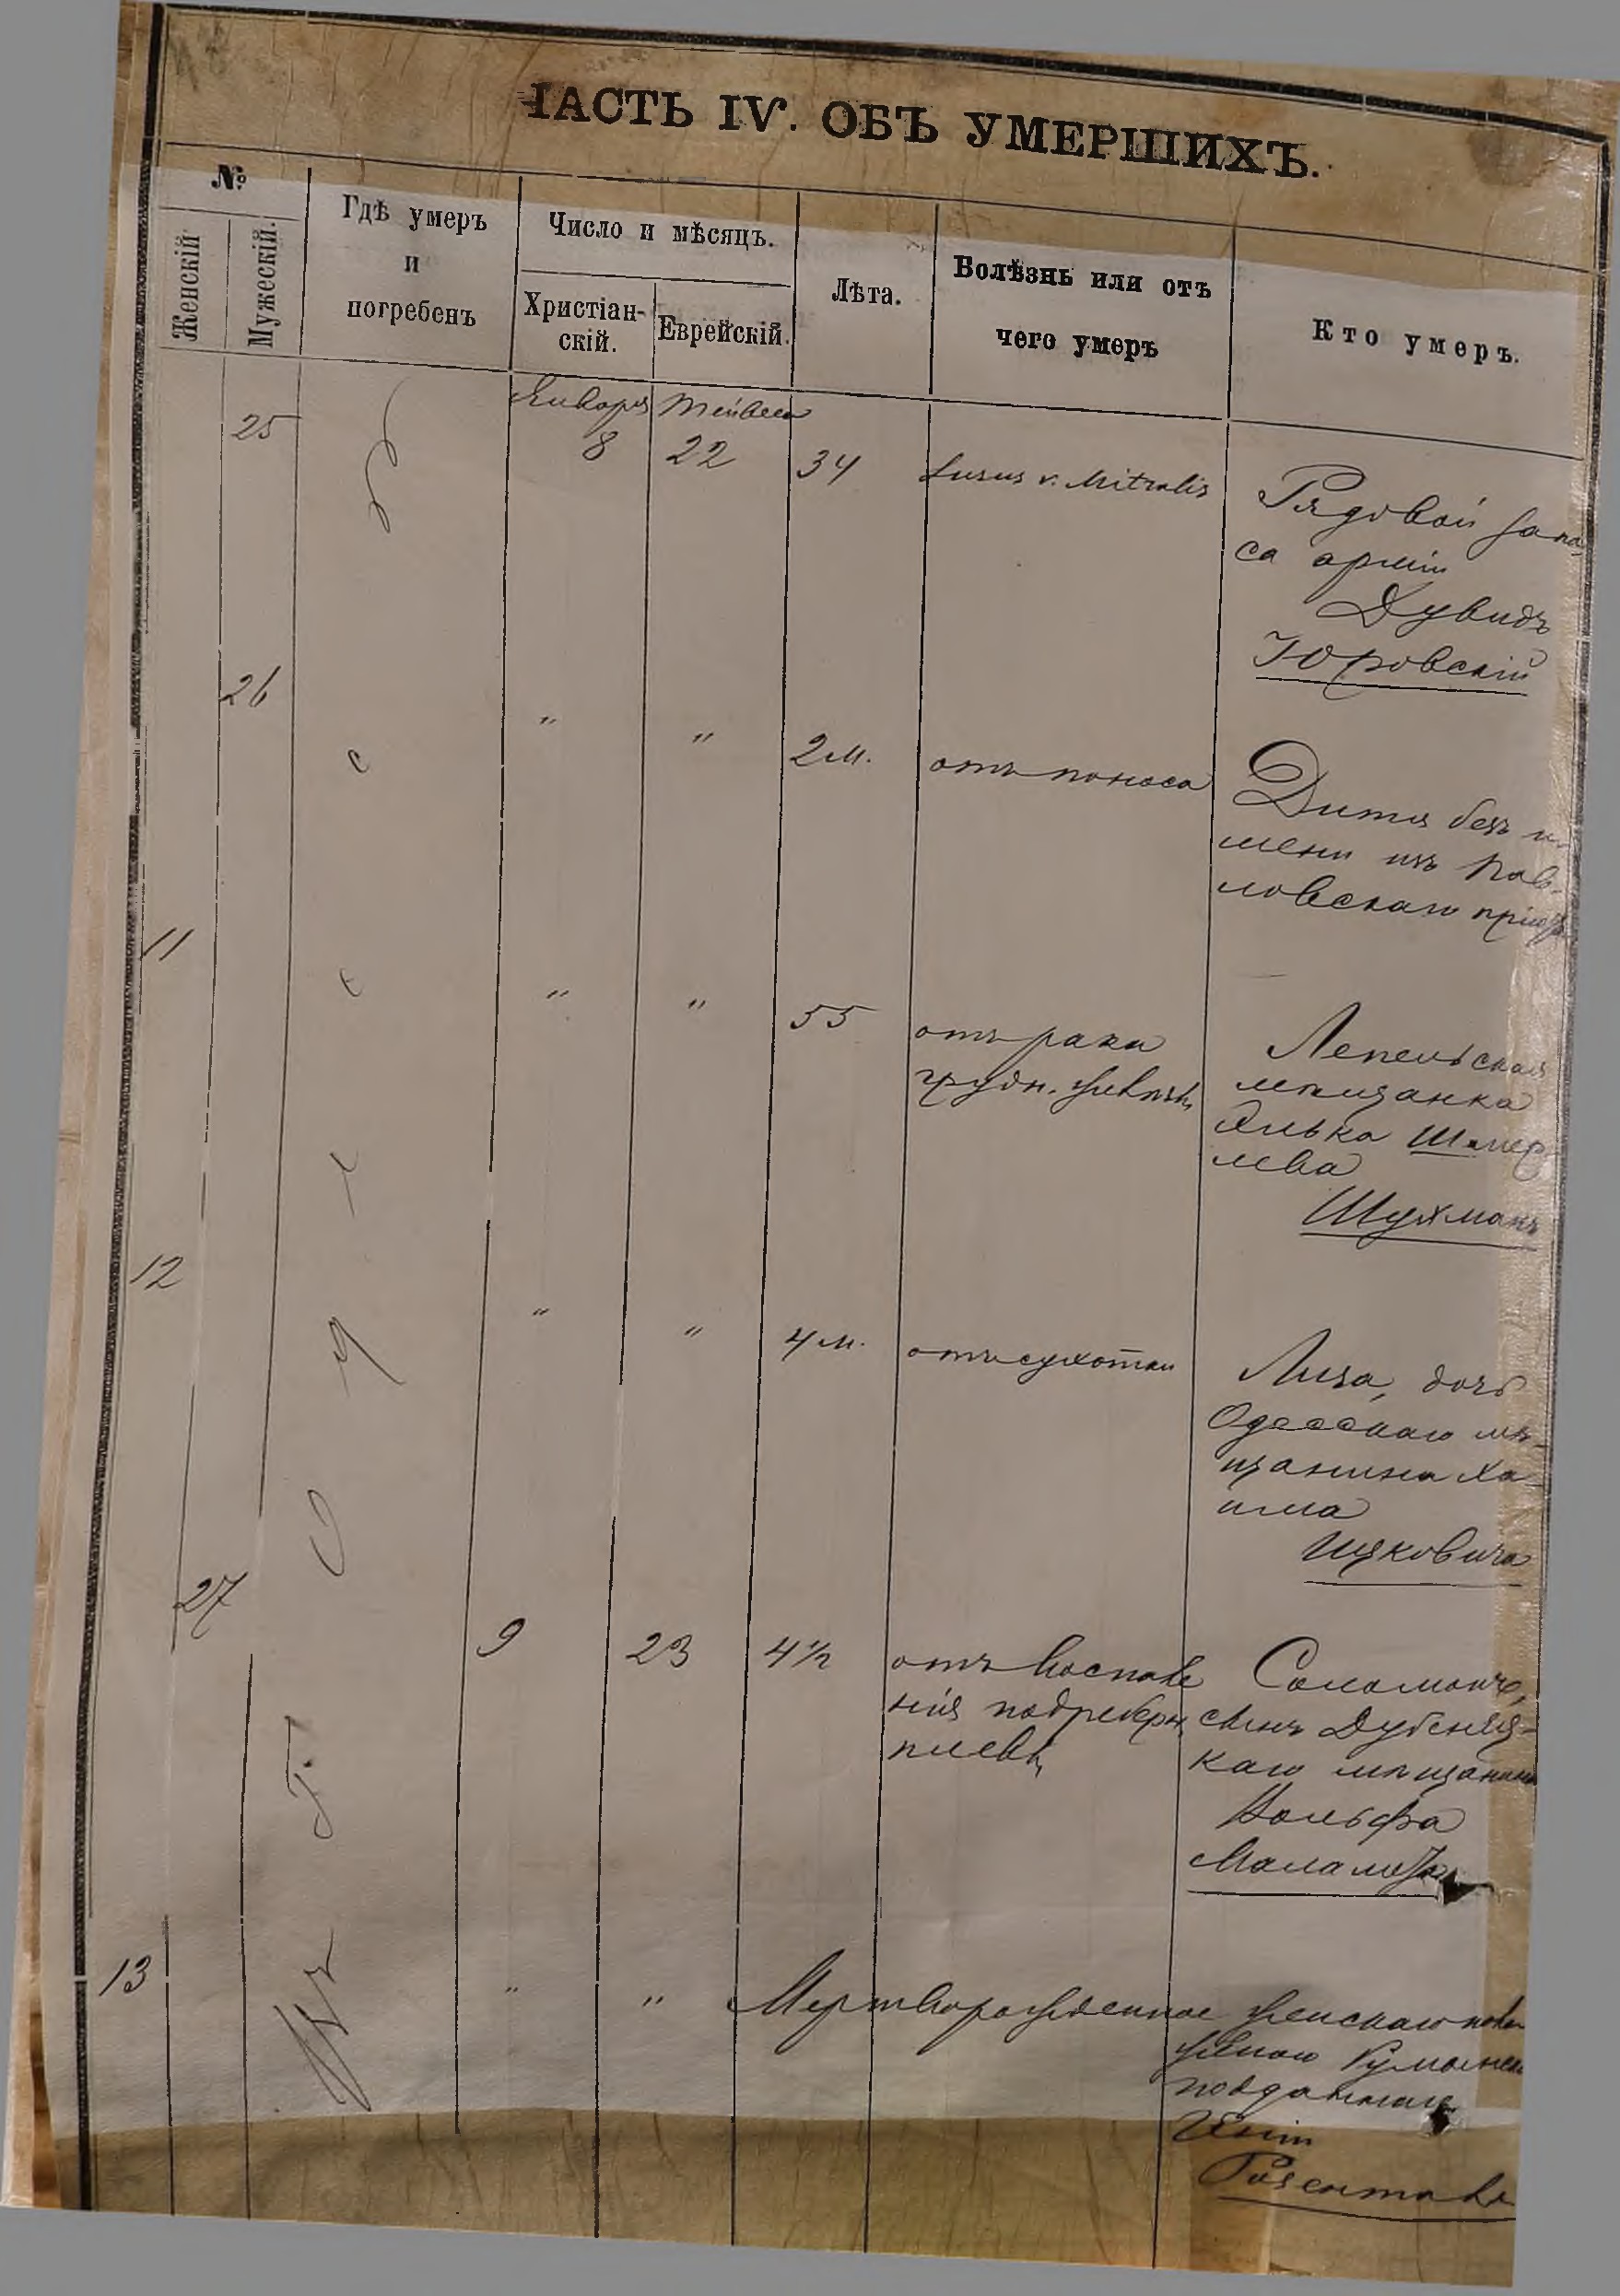 ЧАСТЬ IV. ОБЪ УМЕРШИХЪ.
№
Женскій
Мужескій.
Гдѣ умеръ
и
погребенъ
Число и мѣсяцъ.
Христіан-
скій.
Еврейскій.
Лѣта.
Болѣзнь или отъ
чего умеръ
Кто умеръ.
Января Тейвеса
25 8 22 34 Lusus v. Mitralis Рядовой запа-
са арміи
Дувидъ
Юровскій
26 " " 2 м. отъ поноса Дитя безъ и-
мени изъ Пав-
ловскаго пріюта
11 " " 55 отъ рака
грудн. железы
Лепельская
мѣщанка
Элька Шмер-
лева
Шухманъ
12 " " 4 м. отъ сухотки Лиза, дочь
Одесскаго мѣ-
щанина Ха-
има
Ицковича
27 9 23 4½ отъ воспале
нія подреберн.
плевы
Соломонъ,
сынъ Дубенец-
каго мѣщанина
Вольфа
Маламуда
13 " " Мертворожденное женскаго пола
женою Румынск.
подданнаго
Розенталь